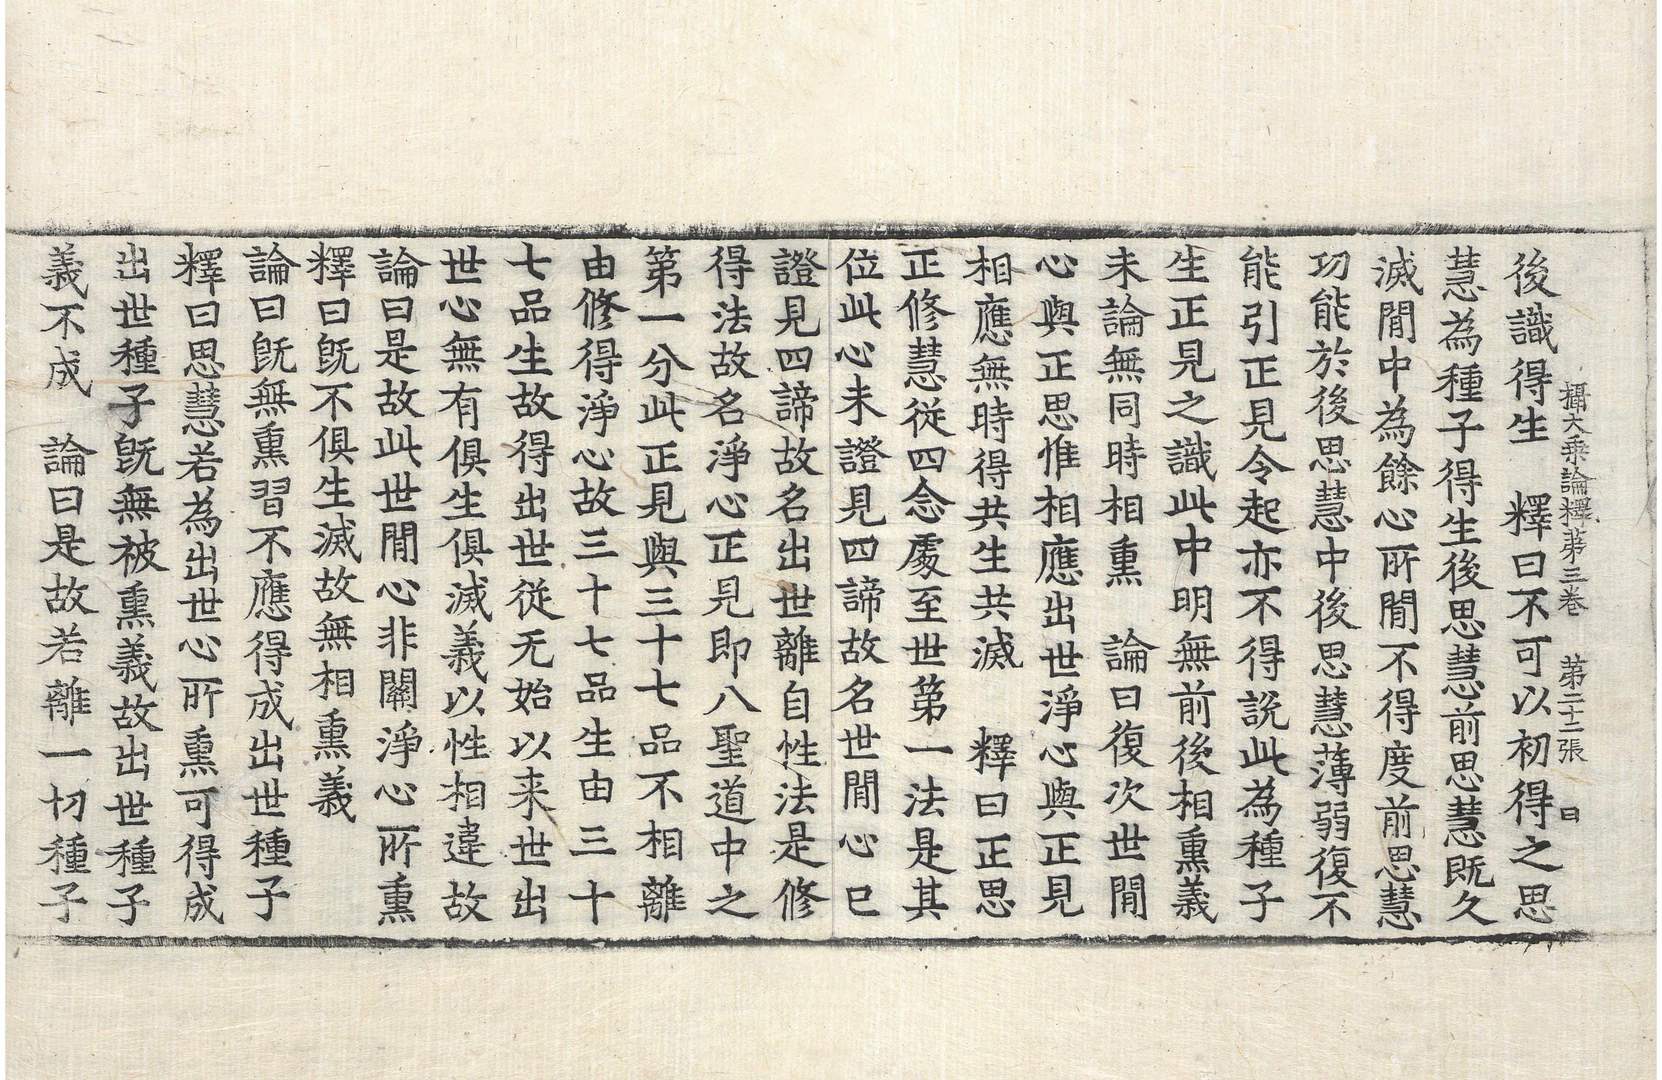 攝大乘論釋第三卷　第二十二張　曰
後識得生　釋曰不可以初得之思
慧為種子得生後思慧前思慧既久
滅間中為餘心所間不得度前思慧
功能於後思慧中後思慧薄弱復不
能引正見令起亦不得說此為種子
生正見之識此中明無前後相熏義
未論無同時相熏　論曰復次世間
心與正思惟相應出世淨心與正見
相應無時得共生共滅　釋曰正思
正修慧從四念處至世第一法是其
位此心未證見四諦故名世間心已
證見四諦故名出世離自性法是修
得法故名淨心正見即八聖道中之
第一分此正見與三十七品不相離
由修得淨心故三十七品生由三十
七品生故得出世從无始以来世出
世心無有俱生俱滅義以性相違故
論曰是故此世間心非關淨心所熏
釋曰既不俱生滅故無相熏義
論曰既無熏習不應得成出世種子
釋曰思慧若為出世心所熏可得成
出世種子既無被熏義故出世種子
義不成　論曰是故若離一切種子